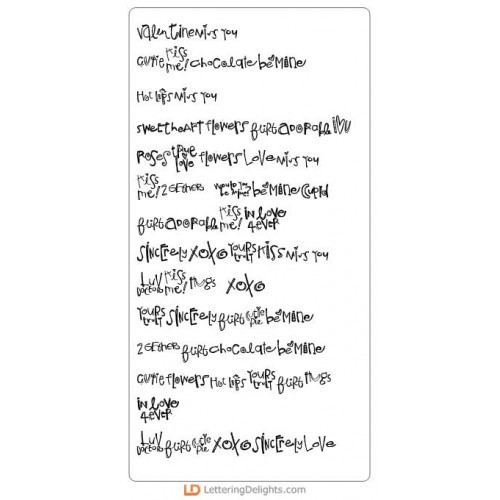 Valentine Miss you
cutie kiss me! chocolate be mine
Hot lips Miss you
sweetheart flowers flirt adorable I ♥ U
Roses true love flowers Love Miss you
kiss me! 2GETHER be mine Cupid
flirt adorable kiss me! in love 4ever
sincerely XOXO Yours truly kiss Miss you
Luv doctor kiss me! Hugs XOXO
Yours truly sincerely flirt cutie pie be mine
2GETHER flirt chocolate be mine
cutie flowers Hot lips Yours truly flirt Hugs
in love 4ever
Luv doctor flirt cutie pie XOXO sincerely Love
LD LetteringDelights.com